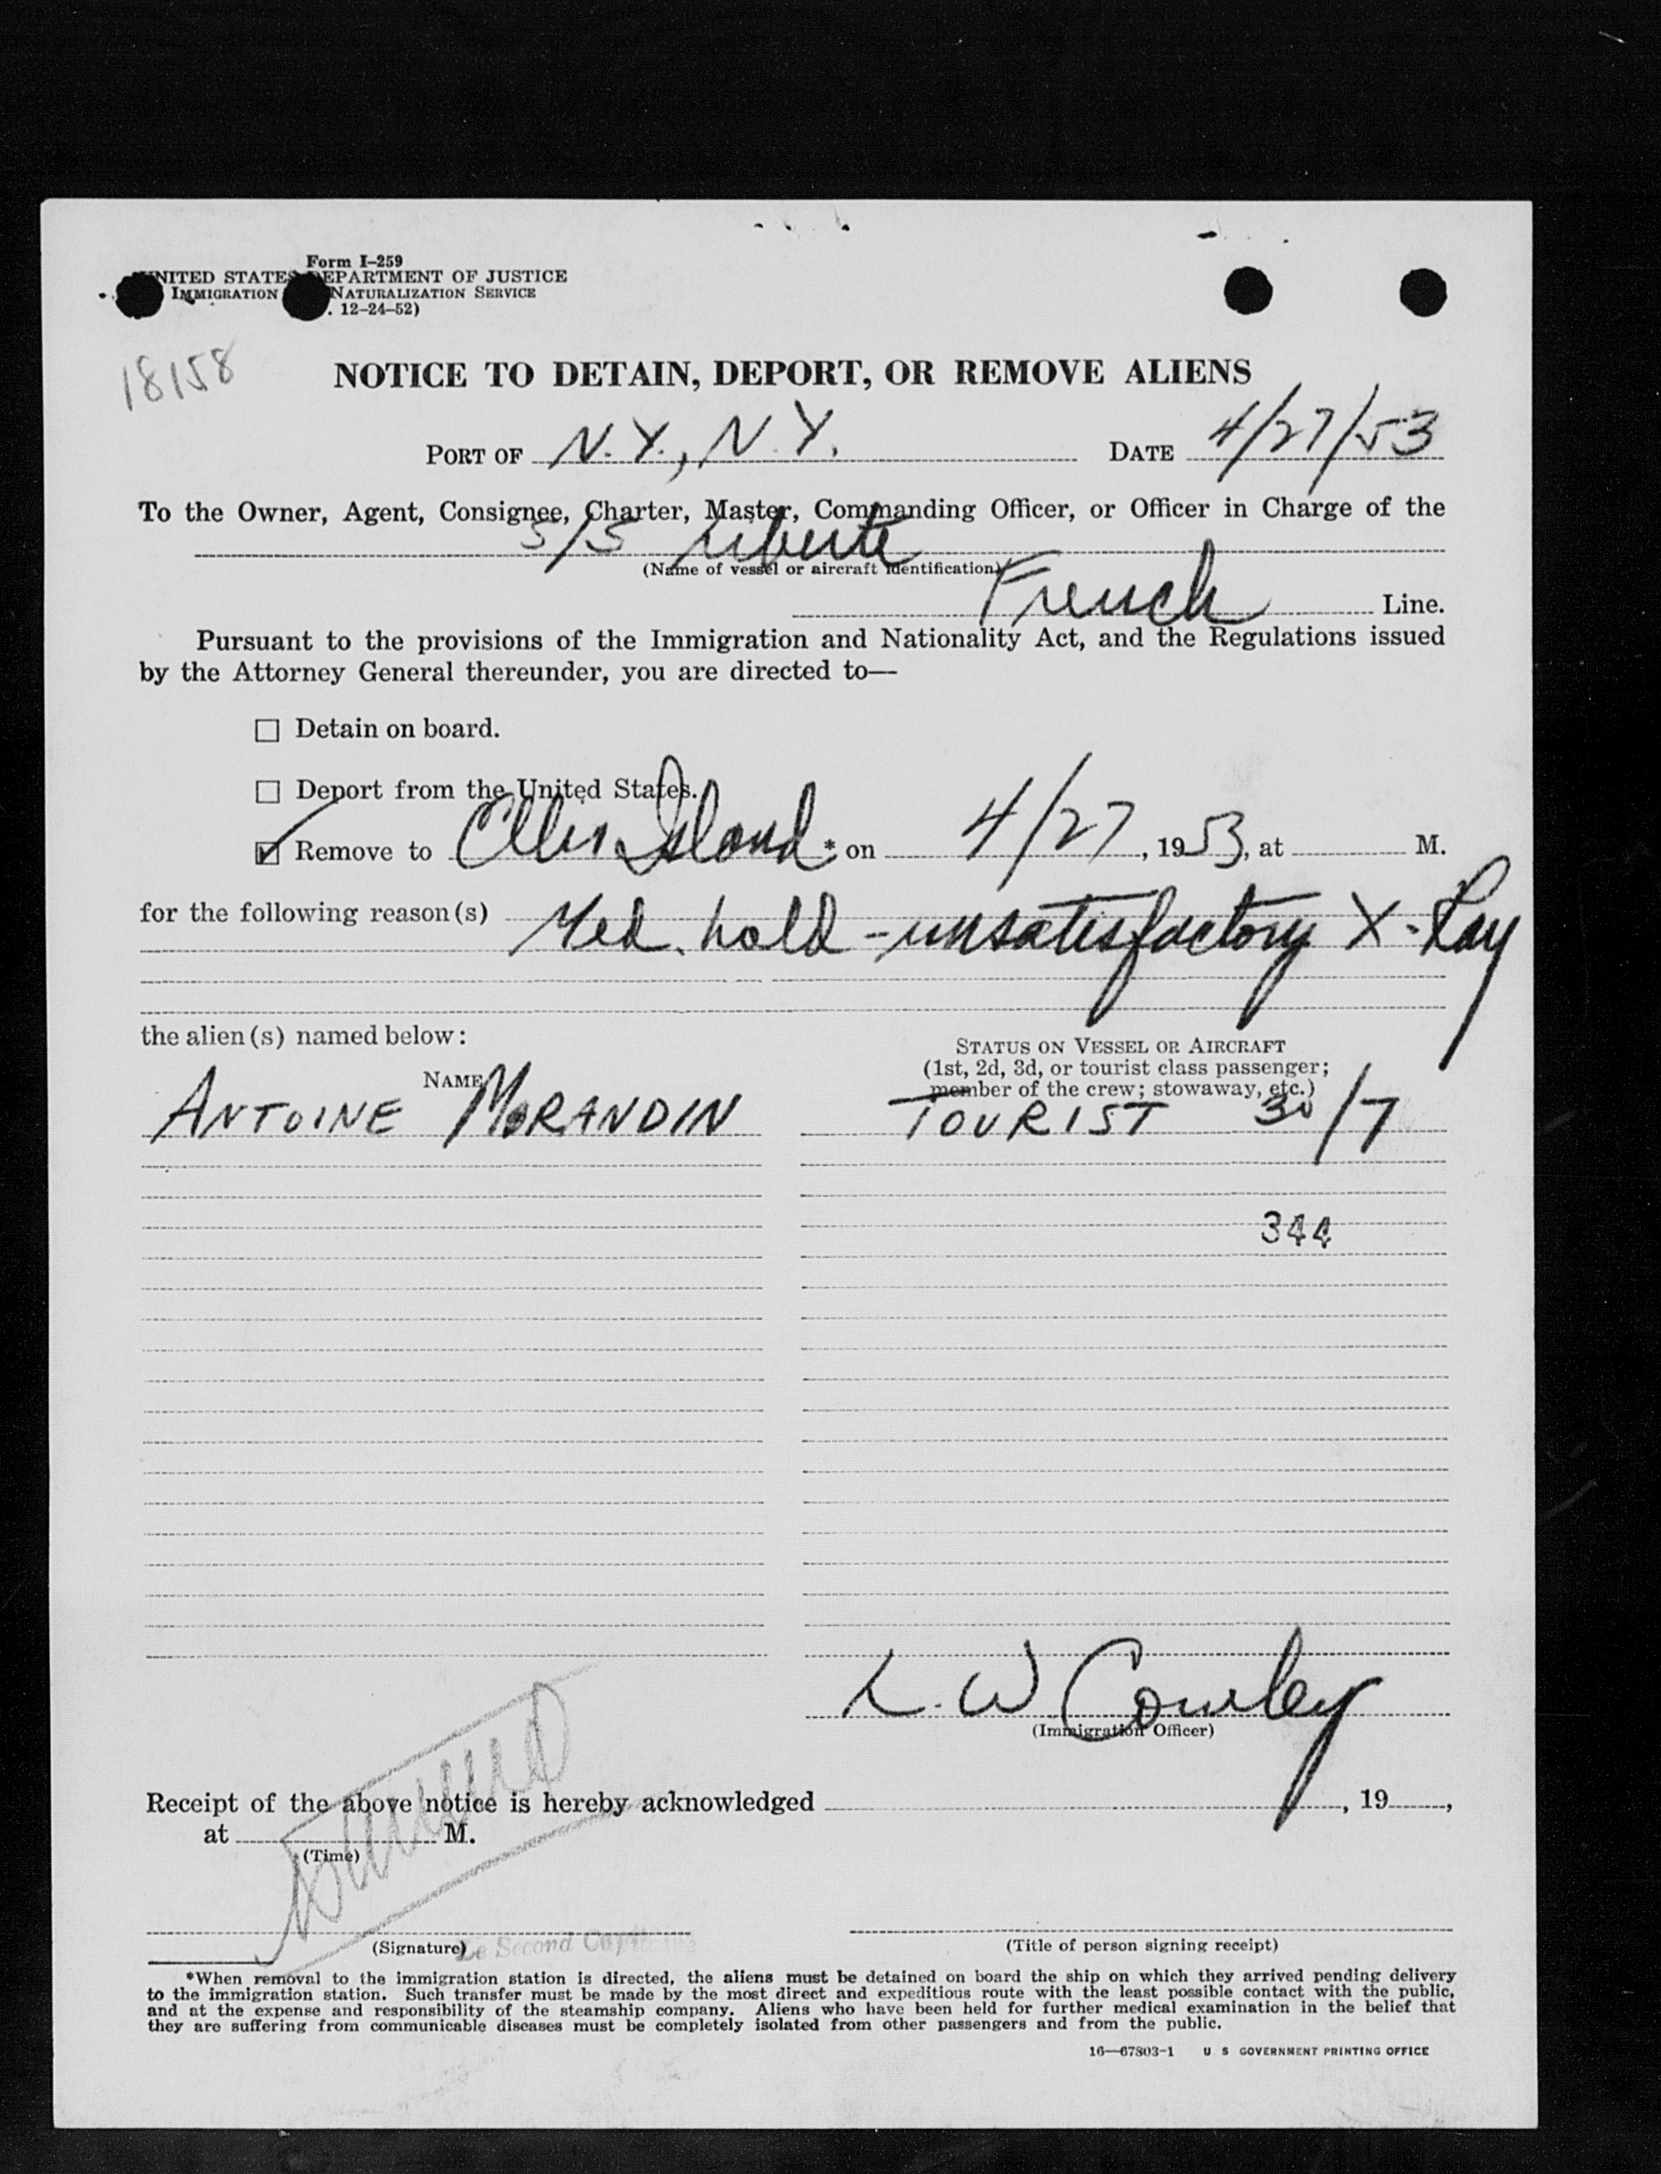 Form I-259
UNITED STATES DEPARTMENT OF JUSTICE
IMMIGRATION NATURALIZATION SERVICE
. 12-24-52)
18158
NOTICE TO DETAIN, DEPORT, OR REMOVE ALIENS
PORT OF N.Y., N.Y. DATE 4/27/53
To the Owner, Agent, Consignee, Charter, Master, Commanding Officer, or Officer in Charge of the
S/S Liberté
(Name of vessel or aircraft identification)
French Line.
Pursuant to the provisions of the Immigration and Nationality Act, and the Regulations issued
by the Attorney General thereunder, you are directed to—
☐ Detain on board.
☐ Deport from the United States.
☑ Remove to Ellis Island * on 4/27, 1953, at M.
for the following reason(s) Med. hold - unsatisfactory X-Ray
the alien(s) named below:
STATUS ON VESSEL OR AIRCRAFT
(1st, 2d, 3d, or tourist class passenger;
NAME member of the crew; stowaway, etc.)
ANTOINE MORANDIN TOURIST 30/7
344
L. W Cowley
(Immigration Officer)
Receipt of the above notice is hereby acknowledged , 19 ,
at M.
(Time)
(Signature) Le Second Capitaine
(Title of person signing receipt)
*When removal to the immigration station is directed, the aliens must be detained on board the ship on which they arrived pending delivery
to the immigration station. Such transfer must be made by the most direct and expeditious route with the least possible contact with the public,
and at the expense and responsibility of the steamship company. Aliens who have been held for further medical examination in the belief that
they are suffering from communicable diseases must be completely isolated from other passengers and from the public.
16—67803-1 U S GOVERNMENT PRINTING OFFICE